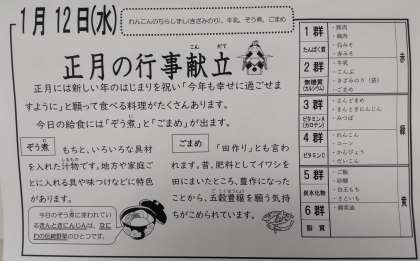 1月12日(水)
れんこんのちらしずし(きざみのり)、牛乳、ぞう煮、ごまめ
正月の行事献立
こん だて
正月には新しい年のはじまりを祝い「今年も幸せに過ごせま
すように」と願って食べる料理がたくさんあります。
今日の給食には「ぞう煮」と「ごまめ」が出ます。
ぞう煮
もちと、いろいろな具材
を入れた汁物です。地方や家庭ご
とに入れる具や味つけなどに特色
があります。
今日のぞう煮に使われてい
るきんときにんじんは、なに
わの伝統野菜のひとつです。
ごまめ
「田作り」とも言わ
れます。昔、肥料としてイワシを
田にまいたところ、豊作になった
ことから、五穀豊穣を願う気持
ちがこめられています。
1群
たんぱく質
・豚肉
・鶏肉
・白みそ
・赤みそ
2群
無機質
(カルシウム)
・牛乳
・こんぶ
・きざみのり(袋)
・ごまめ
赤
3群
ビタミンA
(カロテン)
・さんどまめ
・きんときにんじん
・みつば
4群
ビタミンC
・れんこん
・コーン
・かんぴょう
・だいこん
緑
5群
炭水化物
・ご飯
・砂糖
・白玉もち
・さといも
6群
脂質
・綿実油
黄